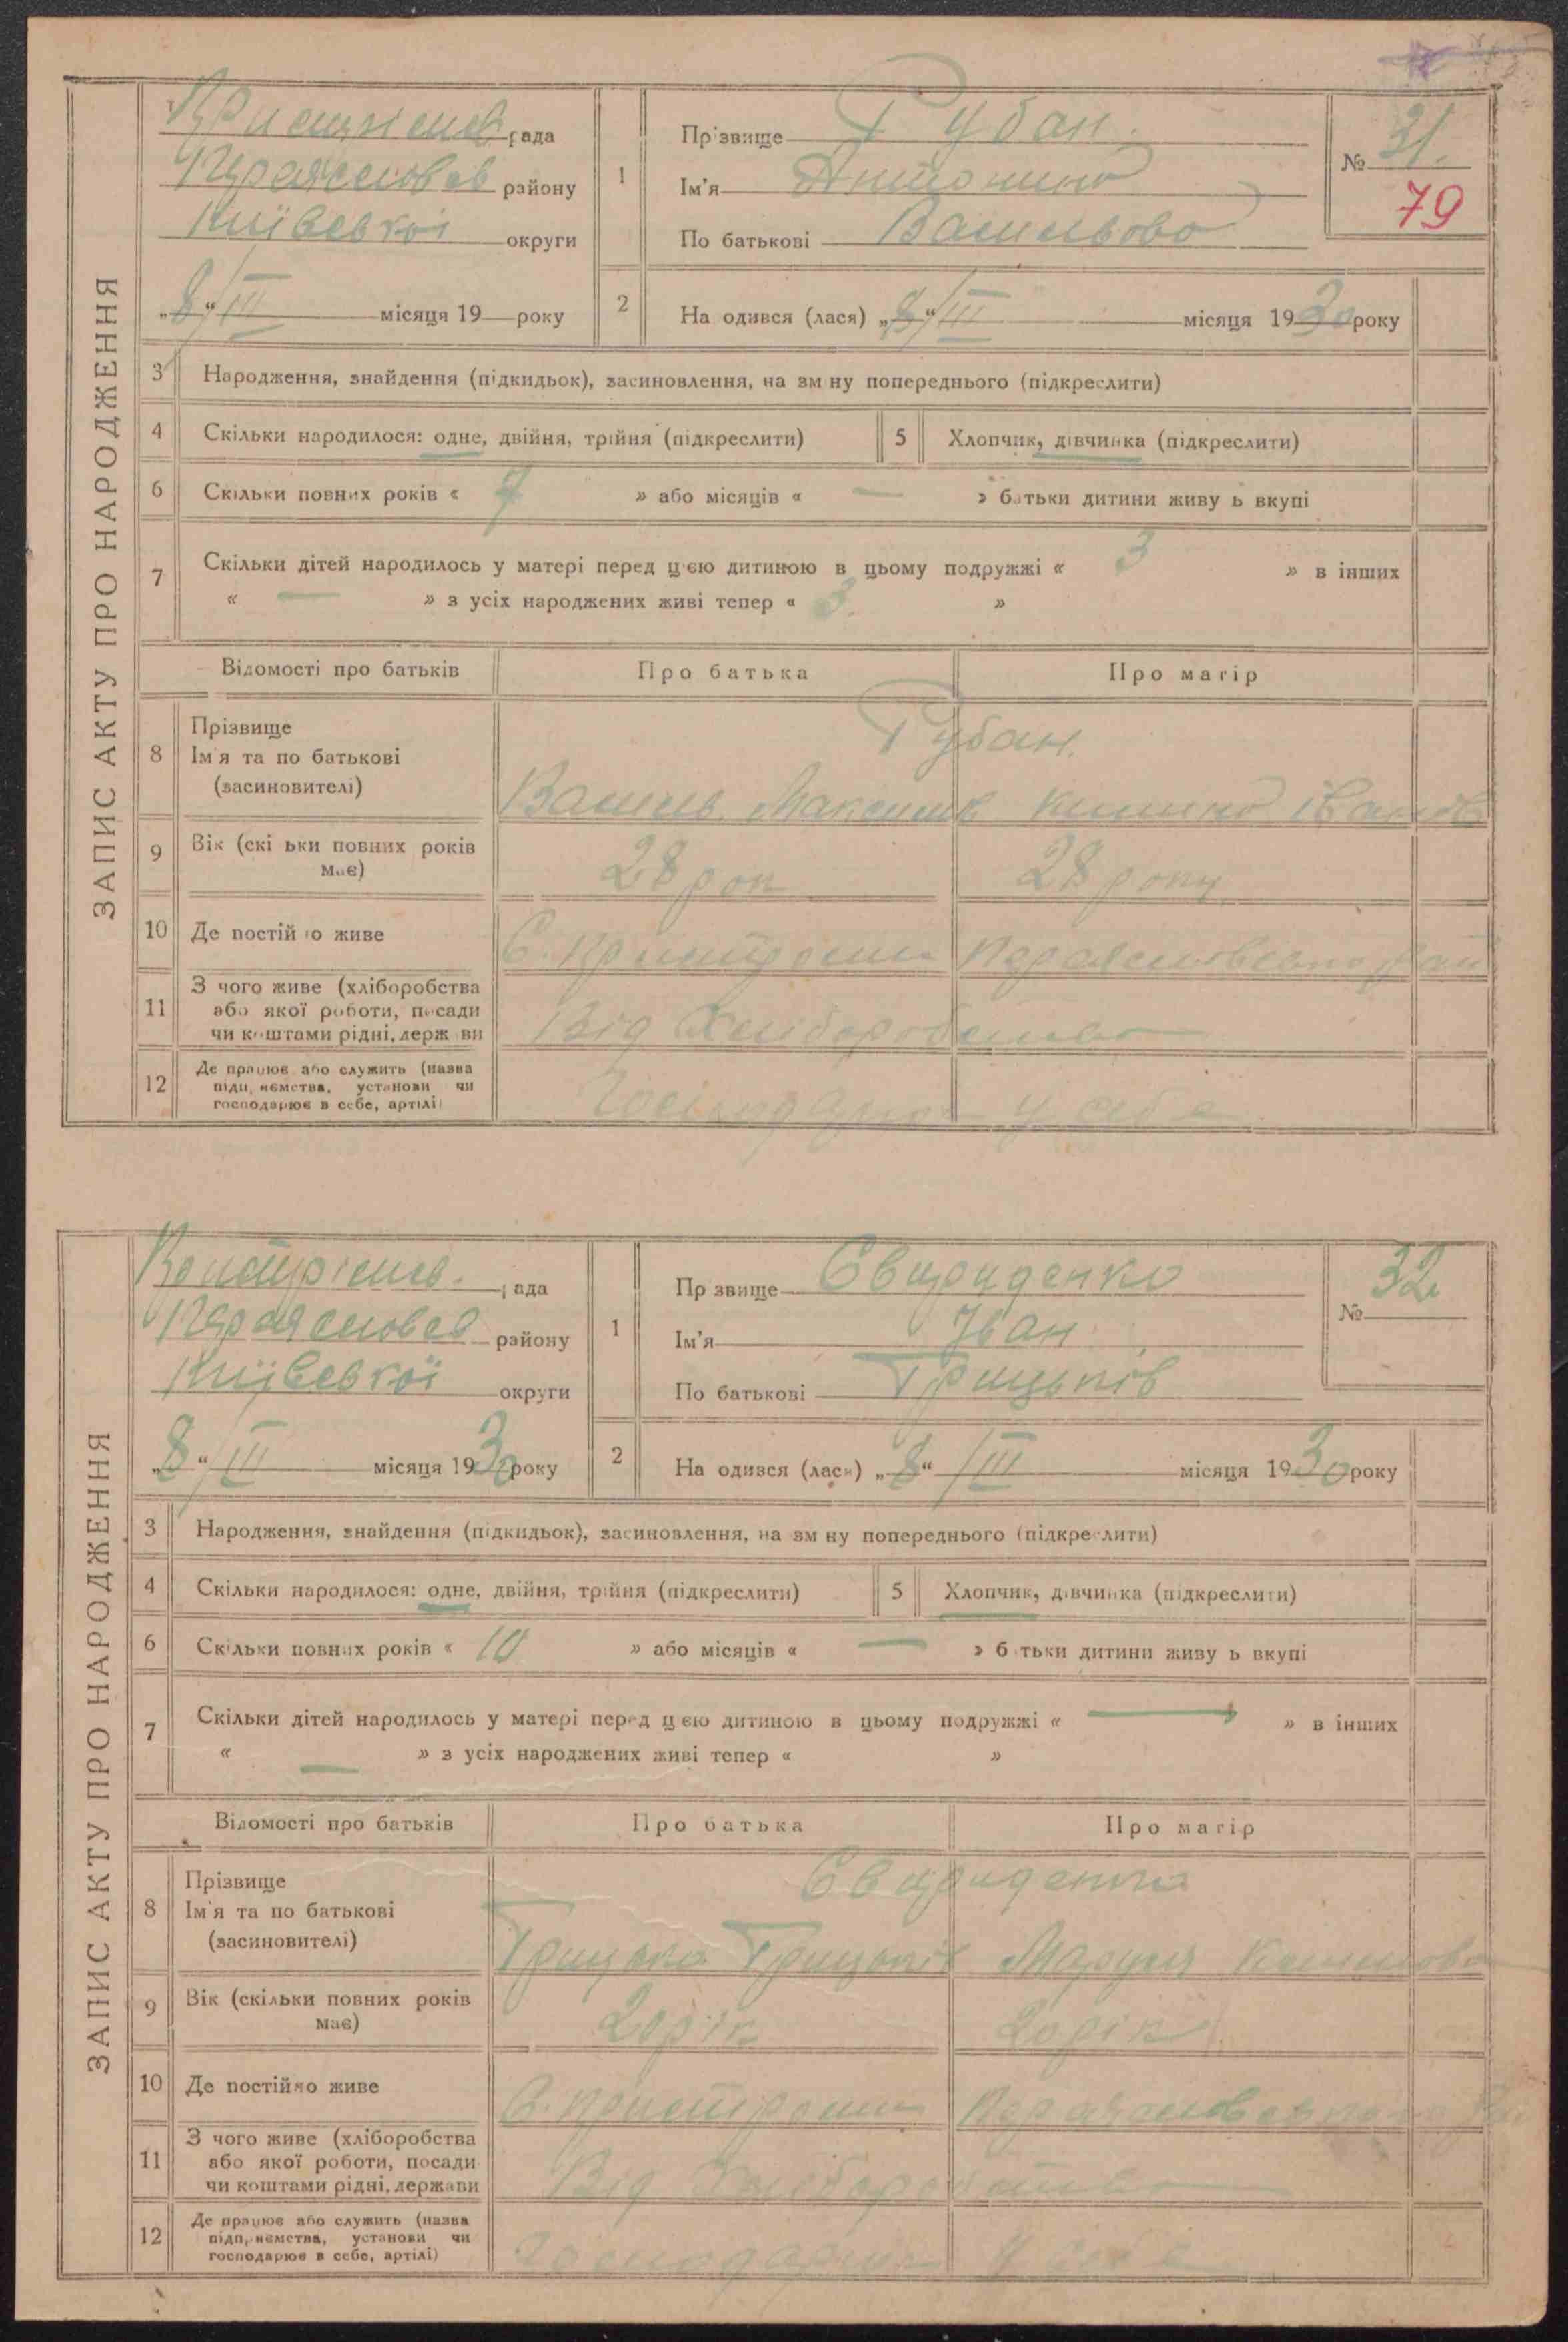 ЗАПИС АКТУ ПРО НАРОДЖЕННЯ
рада
району
Київської округи
„8“/III місяця 19 року
1
Прізвище Рубан.
Ім'я Антонина
По батькові Васильова
№ 31.
79
2
На одився (лася) „8“/III місяця 1930 року
3 Народження, знайдення (підкидьок), засиновлення, на зм ну попереднього (підкреслити)
4 Скільки народилося: одне, двійня, трійня (підкреслити)
5 Хлопчик, дівчинка (підкреслити)
6 Скільки повних років « 7 » або місяців « — » батьки дитини живу ь вкупі
7 Скільки дітей народилось у матері перед цією дитиною в цьому подружжі « 3 » в інших
« — » з усіх народжених живі тепер « 3. »
Відомості про батьків Про батька Про матір
8 Прізвище
Ім'я та по батькові
(засиновителі)
Рубан.
Василь Максимів Иванов
9 Вік (скі ьки повних років
має)
28 рок 28 року
10 Де постій о живе
С.
11 З чого живе (хліборобства
або якої роботи, посади
чи коштами рідні, держ ви
Від Хліборобства
12 Де працює або служить (назва
підприємства, установи чи
господарює в себе, артілі)
у себе
ЗАПИС АКТУ ПРО НАРОДЖЕННЯ
рада
району
Київської округи
„8“/III місяця 1930 року
1
Пр звище Свириденко
Ім'я Іван
По батькові Грицьків
№ 32
2
На одився (лася) „8“/III місяця 1930 року
3 Народження, знайдення (підкидьок), засиновлення, на зм ну попереднього (підкреслити)
4 Скільки народилося: одне, двійня, трійня (підкреслити)
5 Хлопчик, дівчинка (підкреслити)
6 Скільки повних років « 10 » або місяців « — » б тьки дитини живу ь вкупі
7 Скільки дітей народилось у матері перед цією дитиною в цьому подружжі « — » в інших
« — » з усіх народжених живі тепер « »
Відомості про батьків Про батька Про матір
8 Прізвище
Ім'я та по батькові
(засиновителі)
Свириденко
Грицько Грицьків Маруся
9 Вік (скільки повних років
має)
20 рік 20 рік
10 Де постійно живе
С.
11 З чого живе (хліборобства
або якої роботи, посади
чи коштами рідні, держави
Від Хліборобства
12 Де працює або служить (назва
підприємства, установи чи
господарює в себе, артілі)
у себе